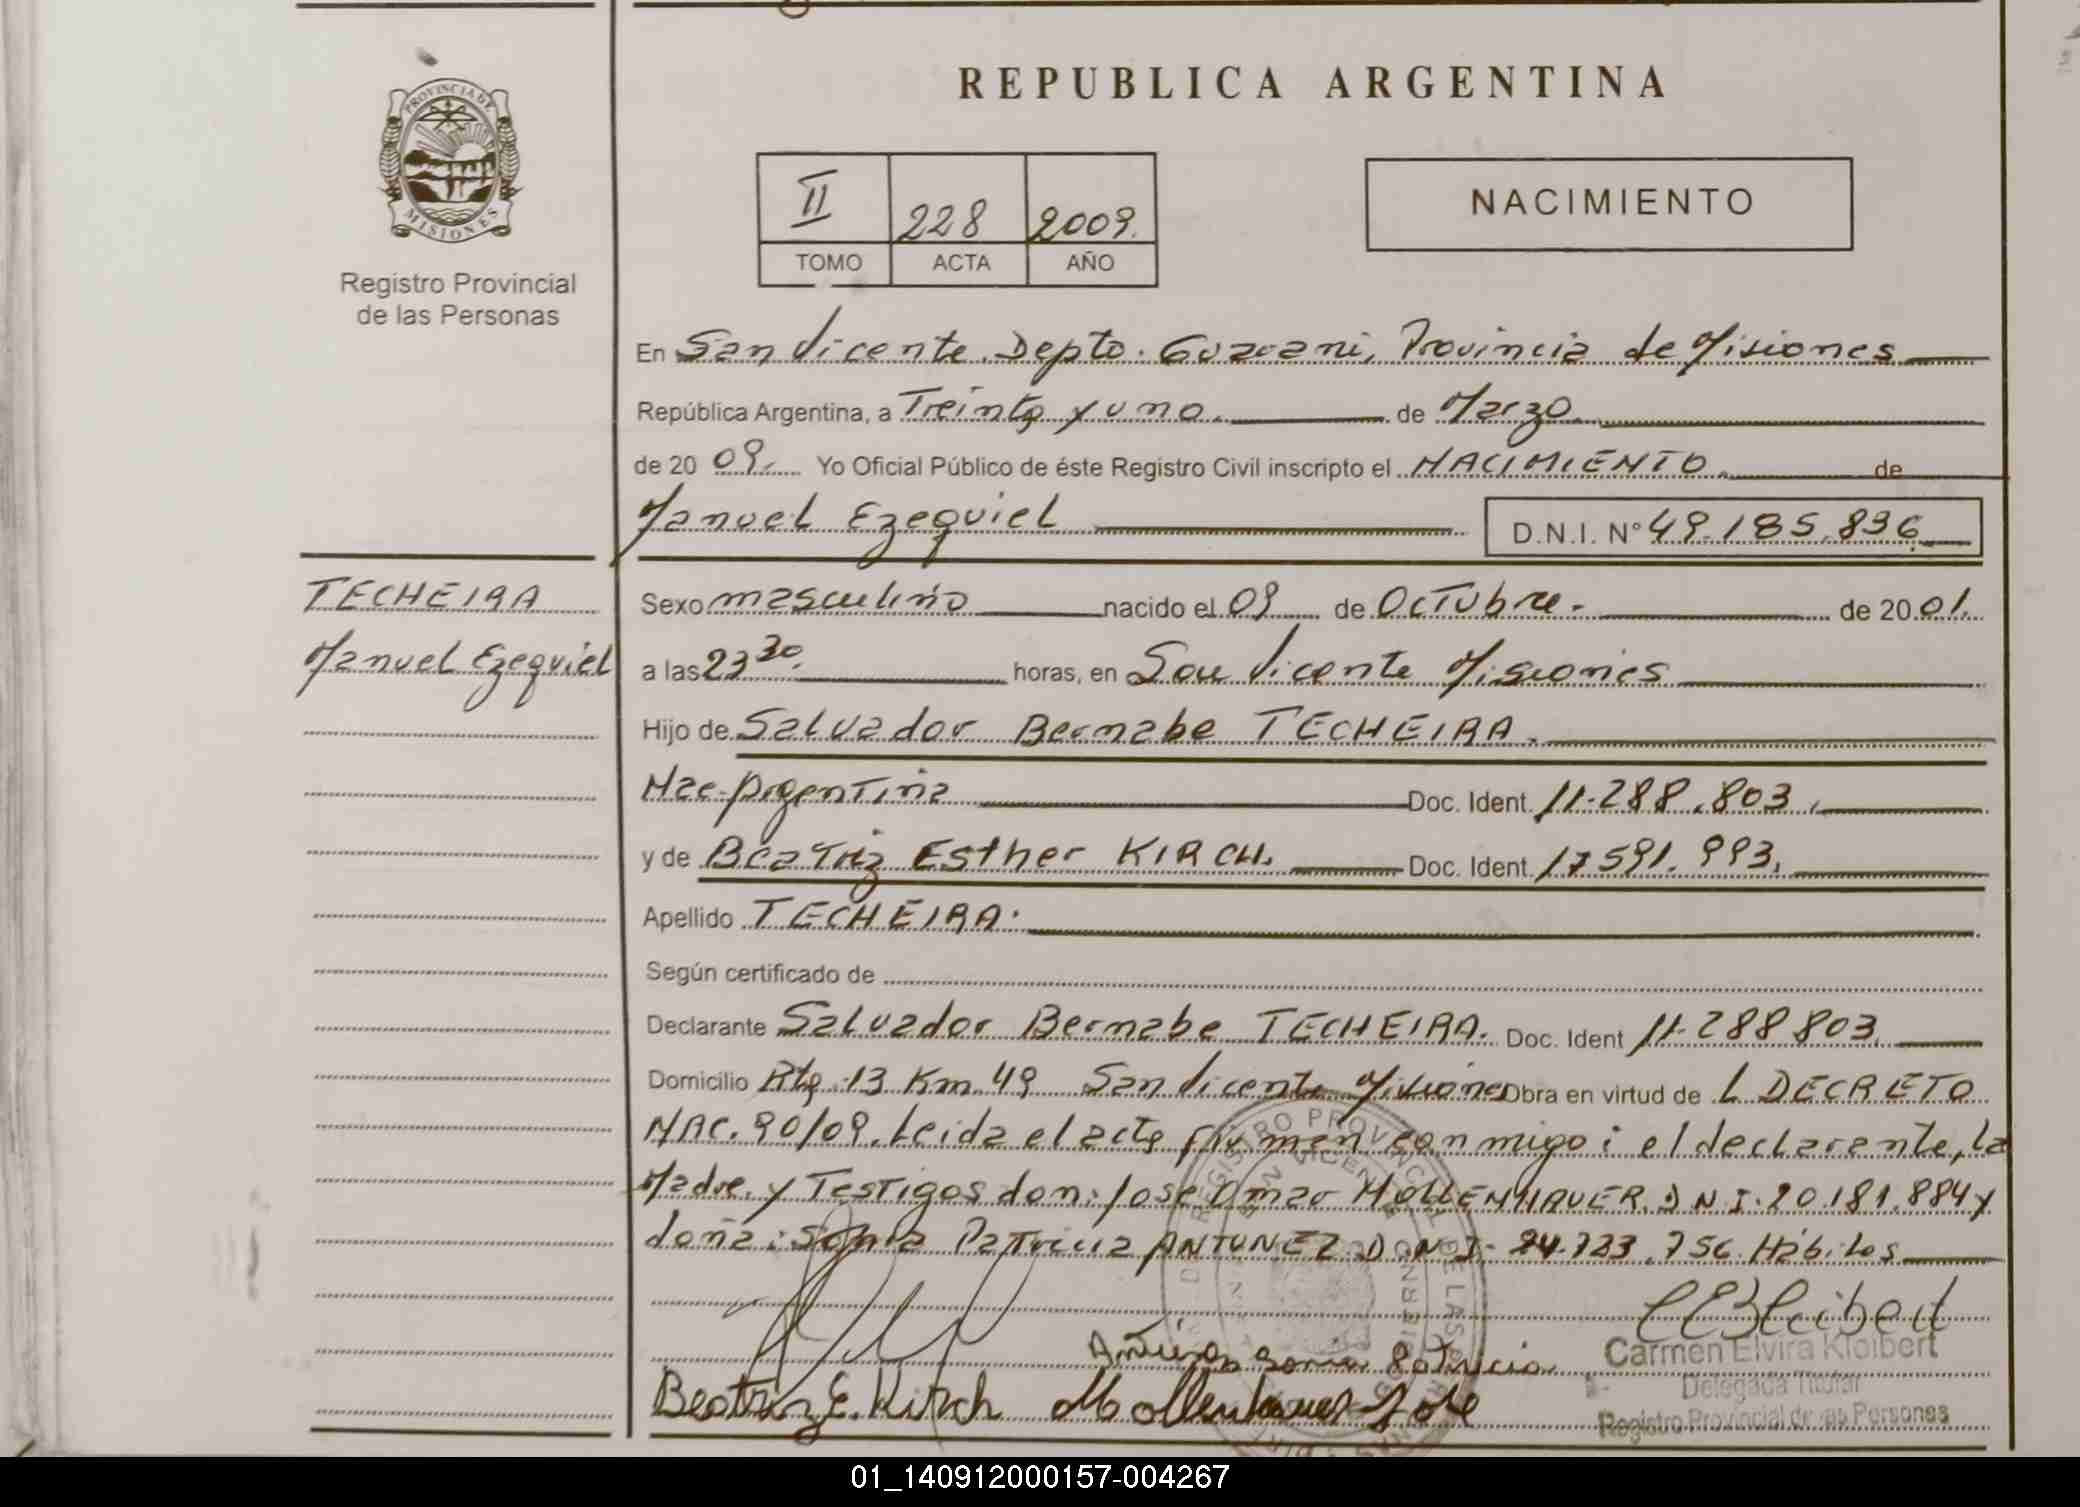 REPUBLICA ARGENTINA
PROVINCIA DE
MISIONES
Registro Provincial
de las Personas
II 228 2009.
TOMO ACTA AÑO
NACIMIENTO
En San Vicente. Depto. Guarani, Provincia de Misiones
República Argentina, a Treinta y uno. de Marzo.
de 20 09. Yo Oficial Público de éste Registro Civil inscripto el NACIMIENTO. de
Manuel Ezequiel D.N.I. N° 49.185.836
TECHEIRA
Manuel Ezequiel
Sexo masculino nacido el 09 de Octubre. de 20 01.
a las 23 30. horas, en San Vicente Misiones
Hijo de Salvador Bernabe TECHEIRA.
Nac. Argentina Doc. Ident. 11.288.803.
y de Beatriz Esther KIRCH. Doc. Ident. 17591.993.
Apellido TECHEIRA.
Según certificado de
Declarante Salvador Bernabe TECHEIRA. Doc. Ident 11.288803.
Domicilio Rta 13 Km. 49 San Vicente Misiones Obra en virtud de L DECRETO
NAC. 90/09. Leida el acta firman conmigo: el declarante, la
Madre. y Testigos don: Jose Omar HOLLENHAUER. D N I. 20.181.884 y
doña: Sonia Patricia ANTUNEZ D.N.I. 24.723.756. Hábiles
Antunez Sonia Patricia
Beatriz E. Kirch Mollenhauer Jose
Carmen Elvira Kloibert
Delegada Titular
Registro Provincial de las Personas
REGISTRO PROVINCIAL DE LAS
SAN VICENTE
01_140912000157-004267